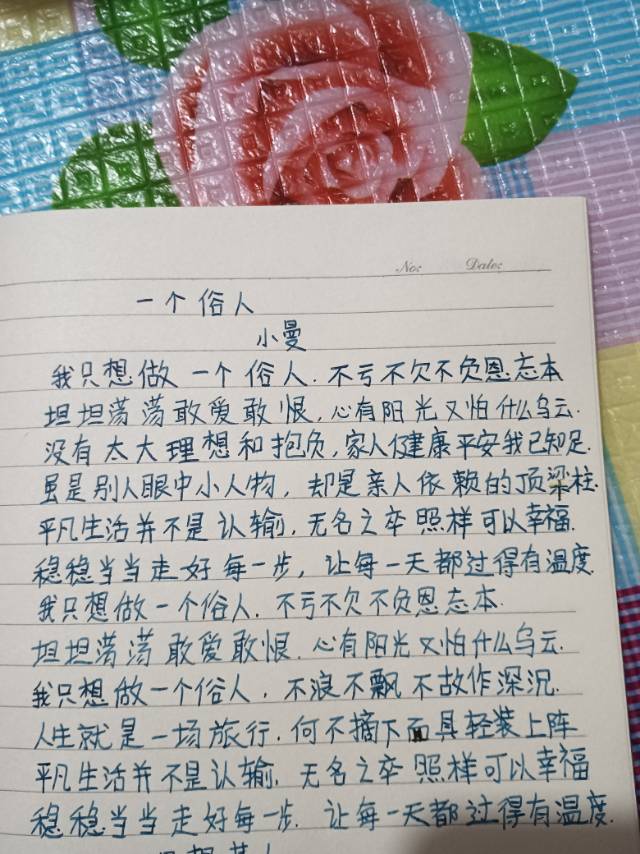 No: Date:
一个俗人
小曼
我只想做一个俗人.不亏不欠不负恩忘本
坦坦荡荡敢爱敢恨,心有阳光又怕什么乌云.
没有太大理想和抱负,家人健康平安我已知足.
虽是别人眼中小人物,却是亲人依赖的顶梁柱.
平凡生活并不是认输,无名之卒照样可以幸福.
稳稳当当走好每一步,让每一天都过得有温度.
我只想做一个俗人.不亏不欠不负恩忘本.
坦坦荡荡敢爱敢恨.心有阳光又怕什么乌云.
我只想做一个俗人.不浪不飘不故作深沉.
人生就是一场旅行.何不摘下面具轻装上阵
平凡生活并不是认输.无名之卒照样可以幸福
稳稳当当走好每一步.让每一天都过得有温度.